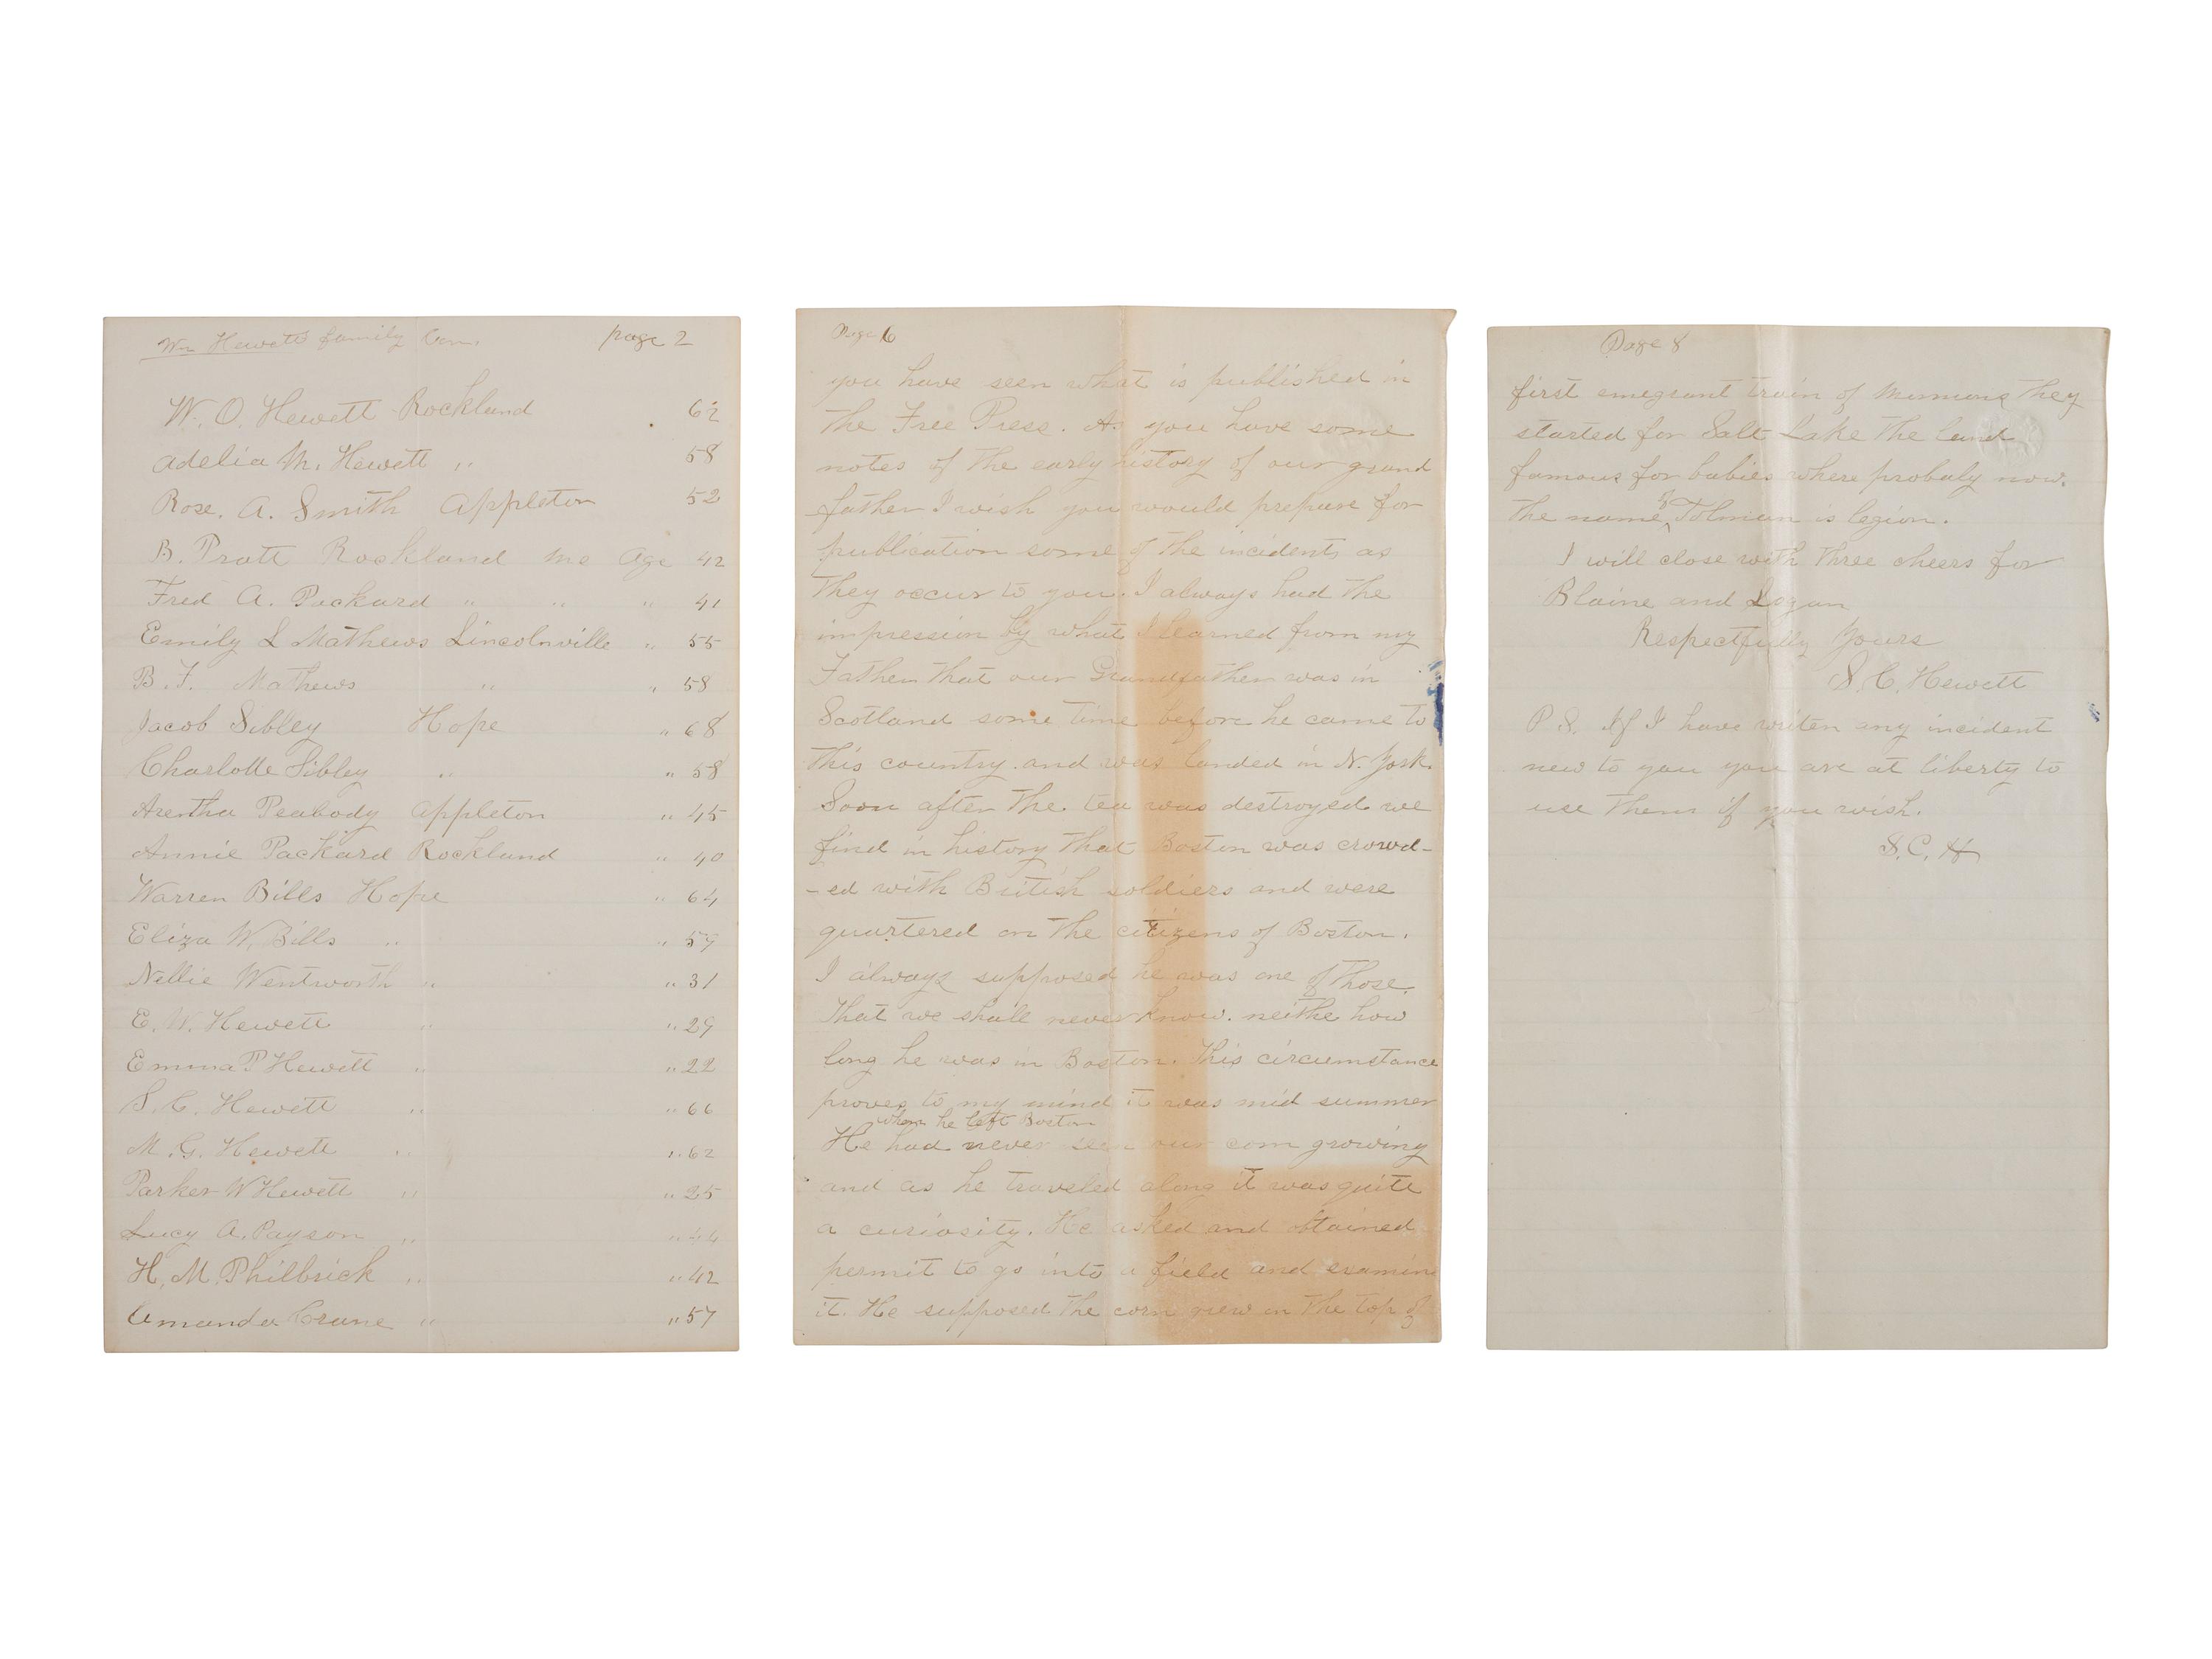 Wm Hewett family Con. page 2
W. O. Hewett Rockland 62
Adelia M. Hewett " 58
Rose. A. Smith Appleton 52
B. Pratt Rockland Me Age 42
Fred A. Packard " " " 41
Emily L Mathews Lincolnville " 55
B. F. Mathews " " 58
Jacob Sibley Hope " 68
Charlotte Sibley " " 58
Peabody Appleton " 45
Annie Packard Rockland " 40
Warren Bills Hope " 64
Eliza W. Bills " " 57
Nellie Wentworth " " 31
E. W. Hewett " " 29
Emma P Hewett " " 22
S. C. Hewett " " 66
M. G. Hewett " " 62
Parker W Hewett " " 25
Lucy A. Payson " " 44
H. M. Philbrick " " 42
Amanda Crane " " 57
Page 6
you have seen what is published in
the Free Press. As you have some
notes of the early history of our grand
father I wish you would prepare for
publication some of the incidents as
they occur to you. I always had the
impression by what I learned from my
Father that our Grandfather was in
Scotland some time before he came to
this country. and was landed in N. York.
Soon after the tea was destroyed we
find in history that Boston was crowd-
-ed with British soldiers and were
quartered on the citizens of Boston.
I always supposed he was one of those.
That we shall never know. neithe how
long he was in Boston. This circumstance
proves to my mind it was mid summer
when he left Boston
He had never seen our corn growing
and as he traveled along it was quite
a curiosity. He asked and obtained
permit to go into a field and examin
it. He supposed the corn grew in the top of
Page 8
first emegrant train of Mormons they
started for Salt Lake the land
famous for babies where probaly now.
the name of Tolman is legion.
I will close with three cheers for
Blaine and Logan
Respectfully Yours
S. C. Hewett
P S. If I have writen any incident
new to you you are at liberty to
use them if you wish.
S. C. H